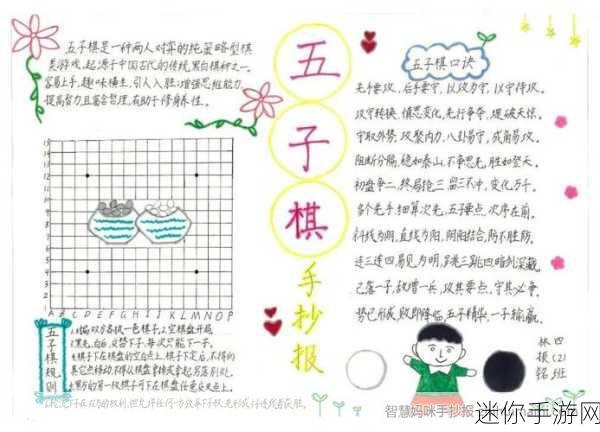 五子棋是一种两人对弈的纯策略型棋
类游戏,起源于中国古代的传统黑白棋种之一。
容易上手,趣味横生,引人入胜;增强思维能力,
提高智力且富含哲理,有助于修身养性。
五
子
棋
手
抄
报
五子棋口诀
先手要攻,后手要守,以攻为守,以守待攻。
攻守转换,慎思变化,先行争夺,堤破天惊。
守取外势,攻聚内力,八卦易守,成角易攻。
阻断分隔,稳如泰山,不争思先,胜如登天。
初盘争二,终局抢三,留三不冲,变化万千。
多个先手,细算次先,五子要点,次序在前。
斜线为阴,直线为阳,阴阳结合,防不胜防。
连三连四易见为明,跳三跳四暗剑深藏。
己落一子,敌增一兵,攻其要点,守其必争。
势已形成,败即降临,五子精华,一子输赢。
15
14
13
12
11
10
9
8
7
6
5
4
3
2
1
A B C D E F G H I J K L M N O P
五子棋规则
1.对局双方各执一色棋子,2.空棋盘开局
3.黑先,白后,交替下子,每次只能下一子。
4.棋子下在棋盘的空白点上,棋子下定后,不得向
其它点移动,不得从棋盘拿掉或拿起另落别处。
5.黑方的第一枚棋子可下在棋盘任意交叉点上。
四(2)班
林
铭
智慧妈咪手抄报
迷你手游网